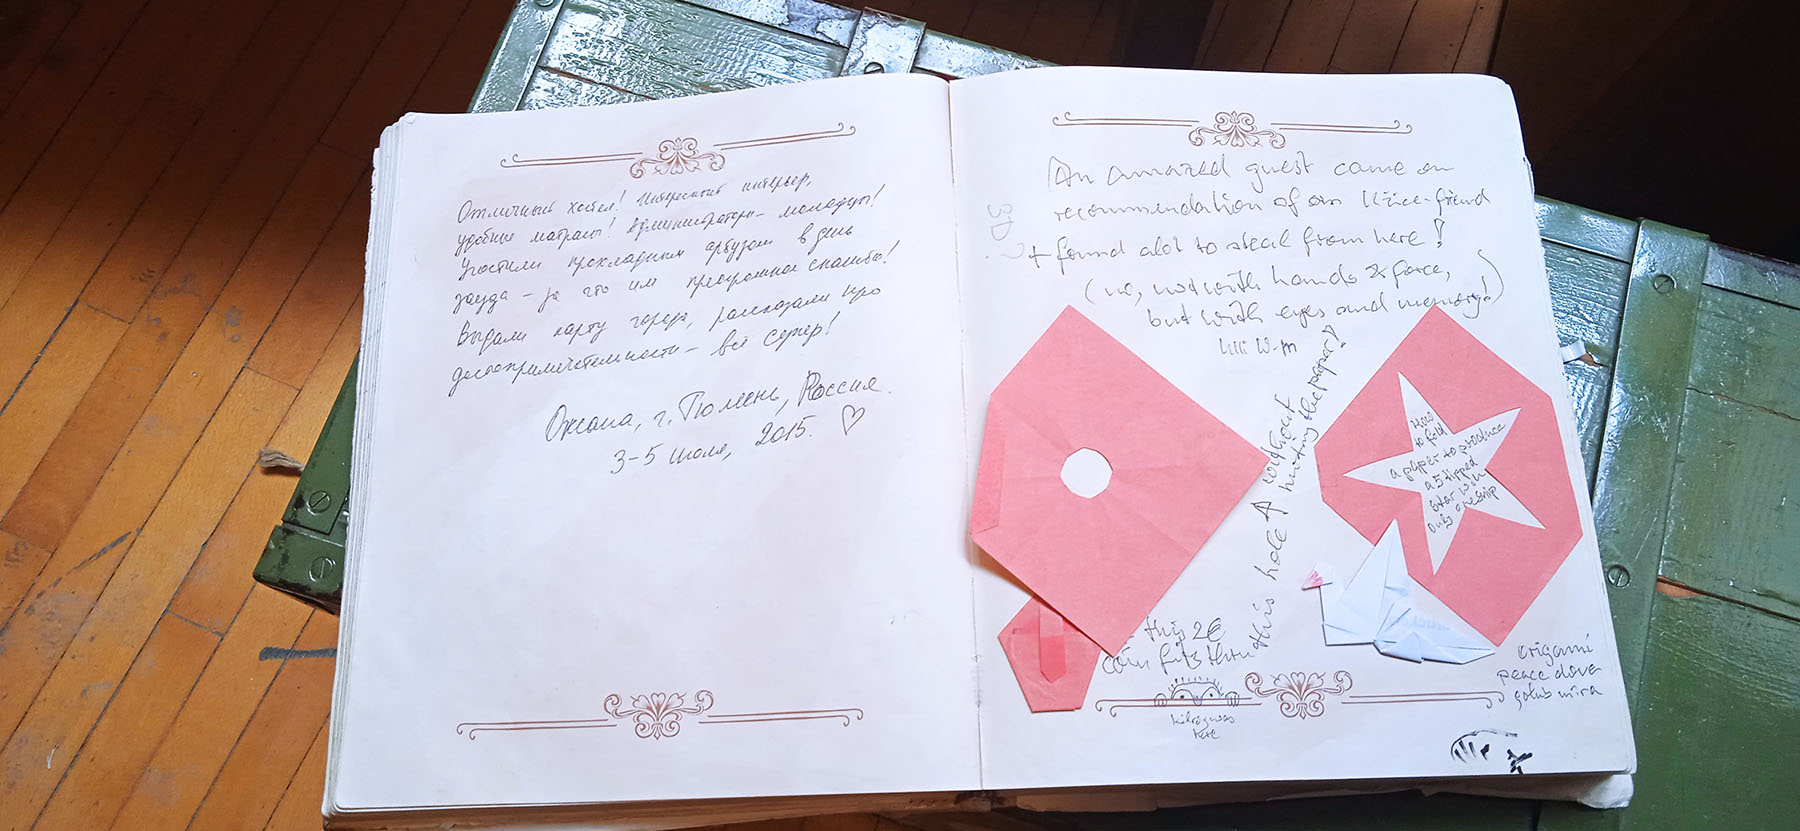 Отличный хостел! Интересный интерьер,
удобные матрацы! Администраторы – молодцы!
Угостили прохладным арбузом в день
заезда – за что им преогромное спасибо!
Выдали карту города, рассказали про
достопримечательности – всё супер!
Оксана, г. Тюмень, Россия.
3–5 июля, 2015. ♡
An amazed guest came on
recommendation of an
+ found alot to steal from here!
(no, not with hands & force,
but with eyes and memory!)
W-m
3D?
this 2€
coin fits thru this hole ↑ without
hurting the paper!
How
to fold
a paper to produce
a 5 tipped
star with
only one snip
origami
peace dove
golub mira
kilroy was
here